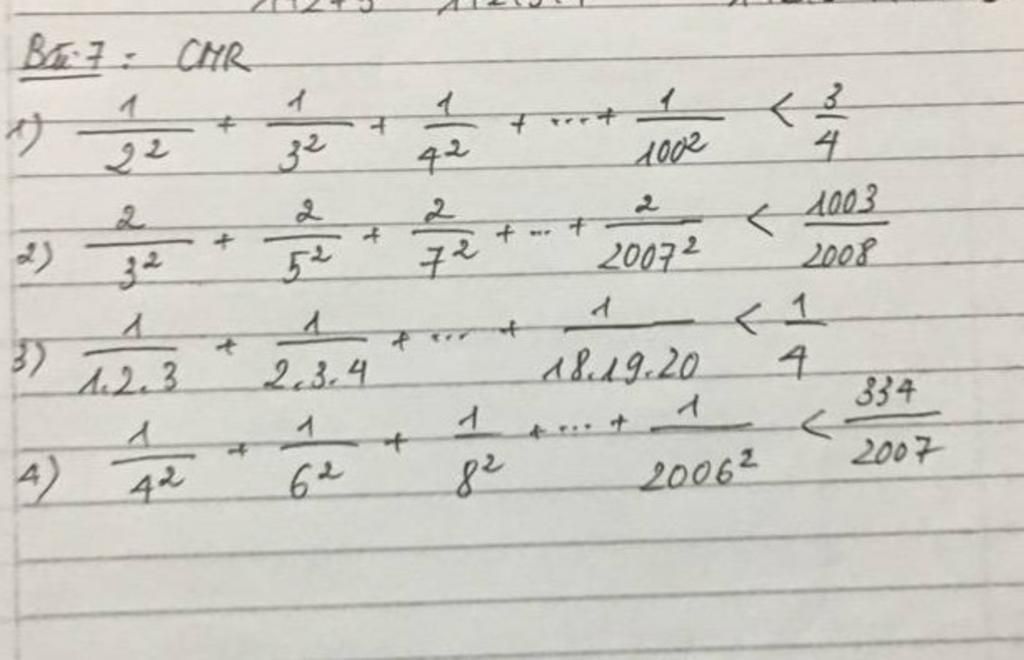 Bài 7 : CMR
1) 1/2² + 1/3² + 1/4² + ... + 1/100² < 3/4
2) 2/3² + 2/5² + 2/7² + ... + 2/2007² < 1003/2008
3) 1/1.2.3 + 1/2.3.4 + ... + 1/18.19.20 < 1/4
4) 1/4² + 1/6² + 1/8² + ... + 1/2006² < 334/2007